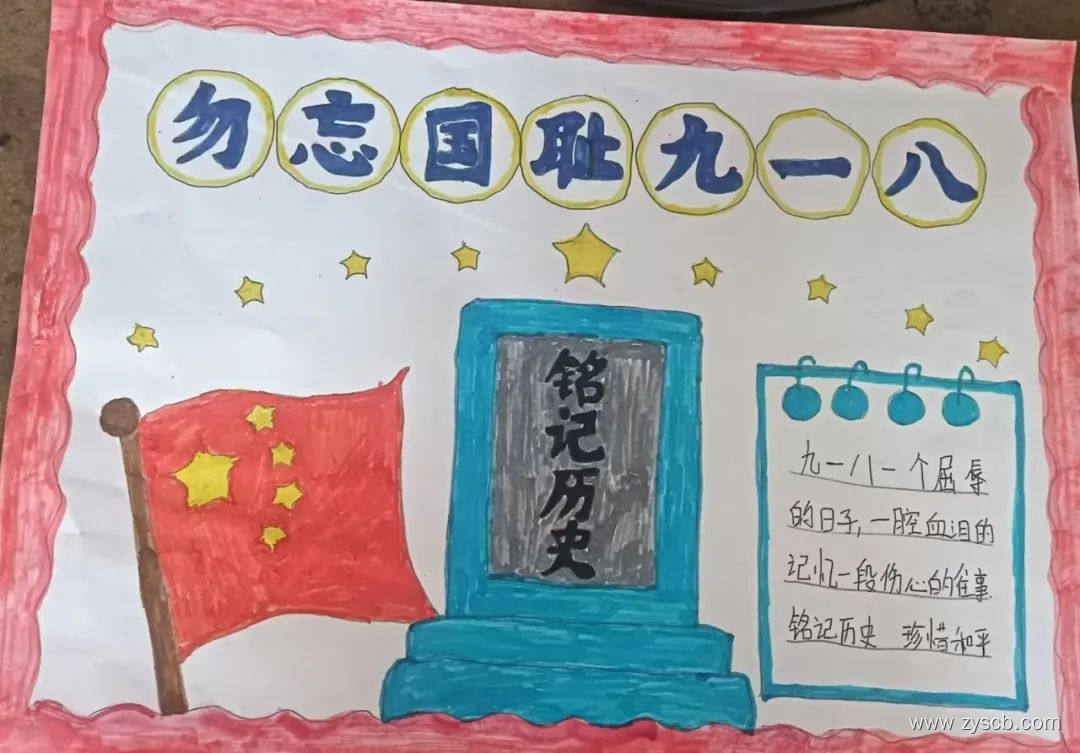 勿忘国耻九一八
铭记历史
九一八一个屈辱
的日子,一腔血泪的
记忆一段伤心的往事
铭记历史 珍惜和平
www.zyscb.com